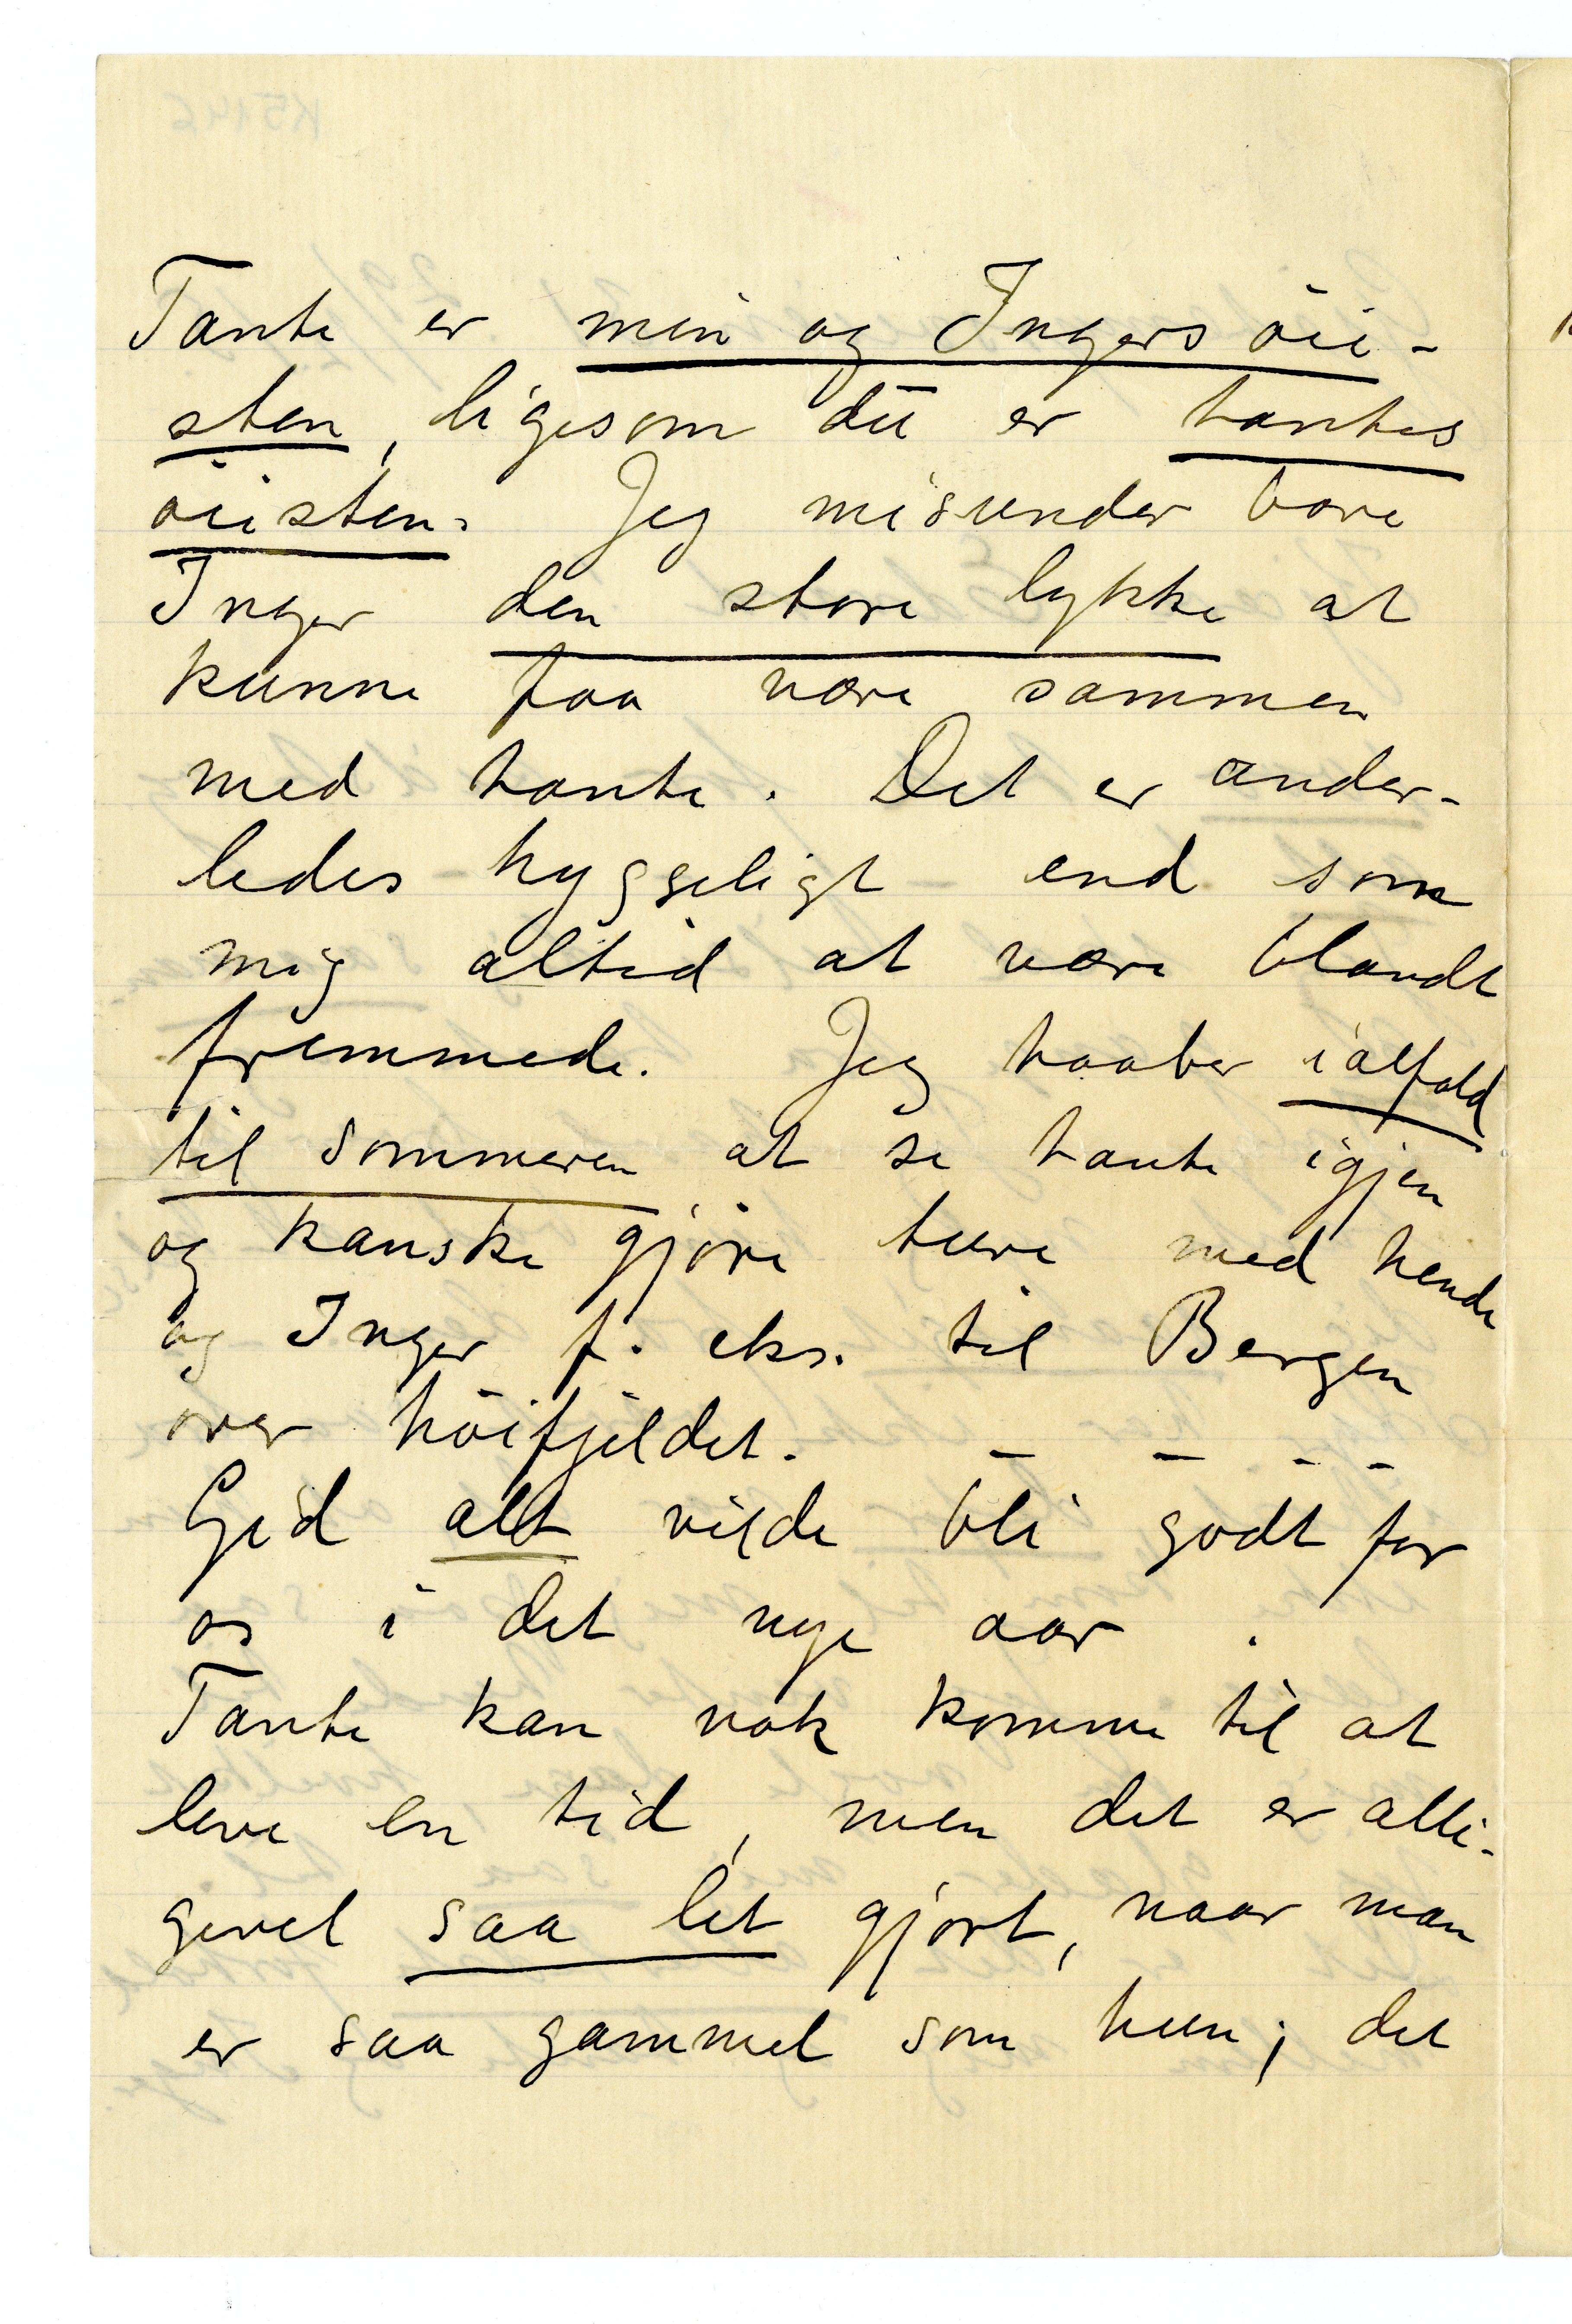 Tante er min og Ingers öie-
sten, ligesom du er tantes
öiesten. Jeg misunder bare
Inger den store lykke at
kunne faa være sammen
med tante. Det er ander-
ledes hyggeligt end som
mig altid at være blandt
fremmede. Jeg haaber ialfald
til sommeren at se tante igjen
og kanske gjöre ture med hende
og Inger f. eks. til Bergen
over höifjeldet. – – – –
Gid alt vilde bli godt for
os i det nye aar.
Tante kan nok komme til at
leve en tid, men det er alli-
gevel saa let gjort, naar man
er saa gammel som hun; det